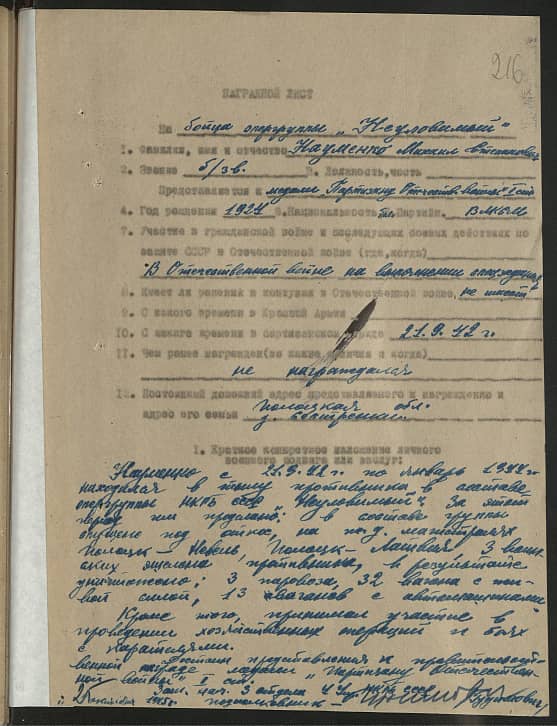 216
НАГРАДНОЙ ЛИСТ
На бойца опергруппы „Неуловимый"
1. Фамилия, имя и отчество Науменко Михаил
2. Звание б/зв. 3. Должность, часть
Представляется к медали „Партизану Отечеств. войны" I ст.
4. Год рождения 1924 5. Национальность 6. Партийн. ВЛКСМ
7. Участие в гражданской войне и последующих боевых действиях по
защите СССР и Отечественной войне (где, когда)
В Отечественной войне на выполнении спецзадания
8. Имеет ли ранения и контузии в Отечественной войне, не имеет
9. С какого времени в Красной Армии
10. С какого времени в партизанском отряде 21.9.42 г.
11. Чем ранее награжден (за какие отличия и когда)
не награждался
12. Постоянный домашний адрес представляемого к награждению и
адрес его семьи Полоцкая обл.
д.
1. Краткое конкретное изложение личного
военного подвига или заслуг:
Науменко с 21.9.42 г. по январь 1944 г.
находился в тылу противника в составе
опергруппы НКГБ „Неуловимый". За этот
период им проделано: в составе группы
пущено под откос, на ж.д. магистралях
Полоцк – Невель, Полоцк – Латвия, 3 воин-
ских эшелона противника, в результате
уничтожено: 3 паровоза, 32 вагона с жи-
вой силой, 13 вагонов с автомашинами
Кроме того, принимал участие в
проведении хозяйственных операций и боях
с карателями.
Достоин представления к правительст-
венной награде медали „Партизану Отечествен-
ной войны" I ст.
Зам. нач. 3 отдела 4 Упр. НКГБ СССР
1945 г. подполковник –